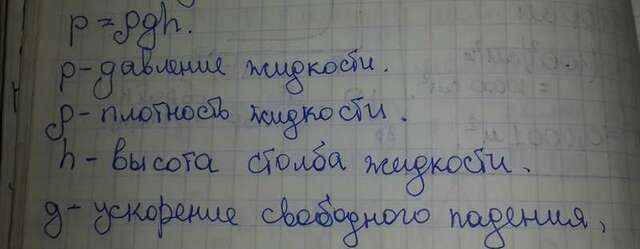 p=ρgh.
p-давление жидкости.
ρ-плотность жидкости.
h-высота столба жидкости.
g-ускорение свободного падения,